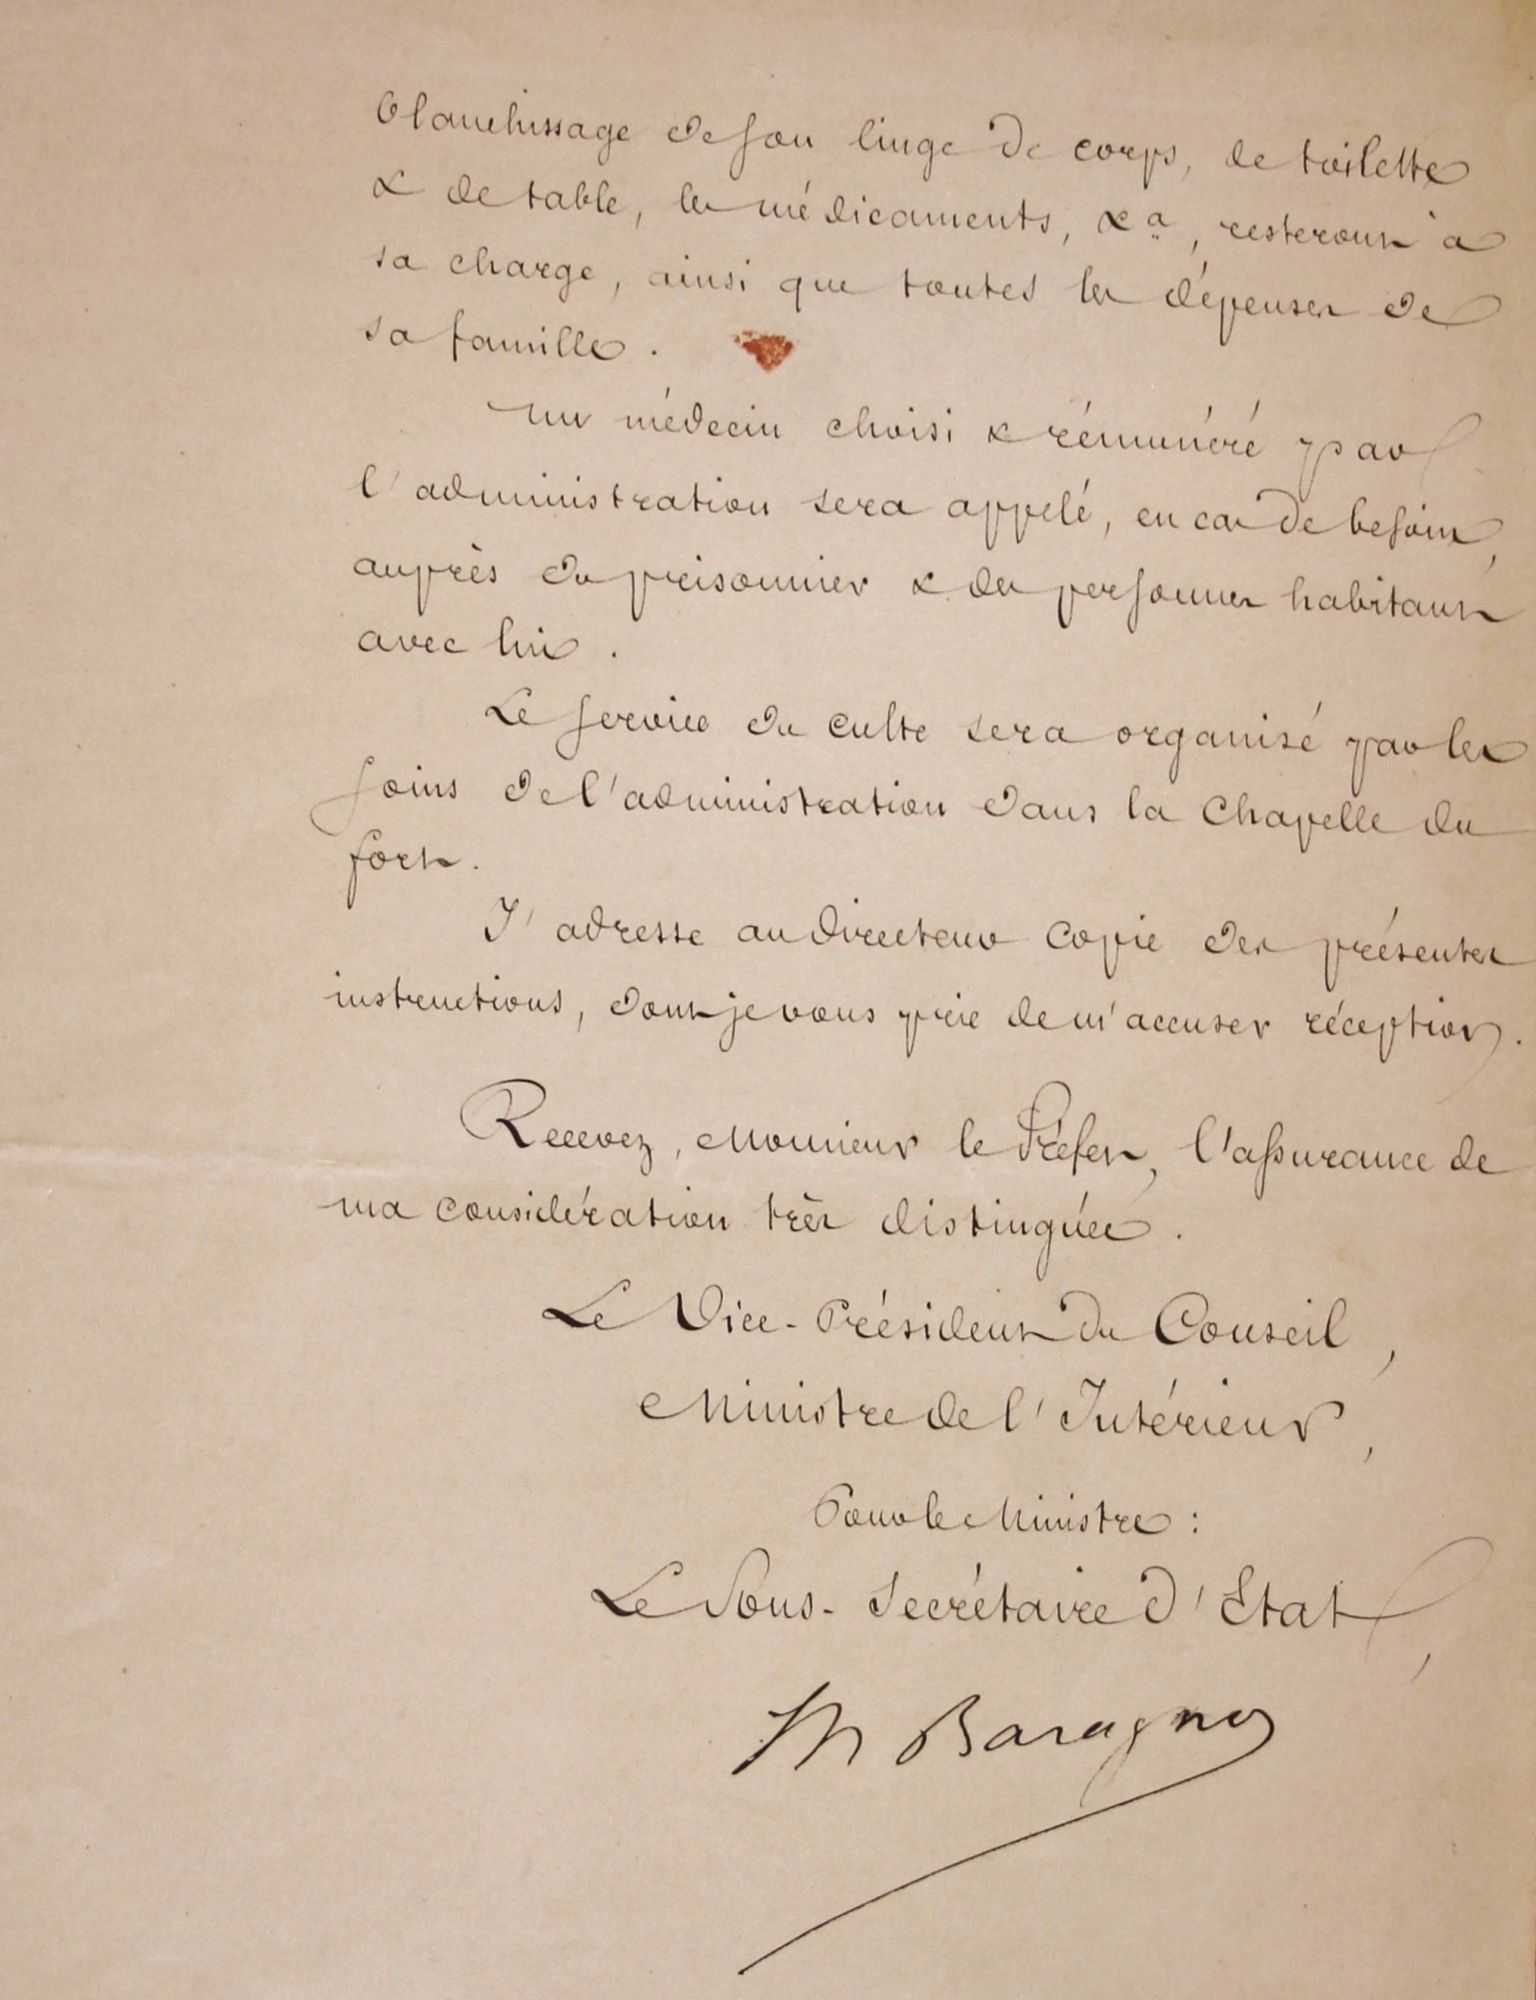 blanchissage de son linge de corps, de toilette
& de table, les médicaments, &a, resteront à
sa charge, ainsi que toutes les dépenses de
sa famille.
Un médecin choisi & rémunéré par
l'administration sera appelé, en cas de besoin,
auprès du prisonnier & des personnes habitant
avec lui.
Le service du culte sera organisé par les
soins de l'administration dans la Chapelle du
fort.
J'adresse au directeur copie des présentes
instructions, dont je vous prie de m'accuser réception.
Recevez, Monsieur le Préfet, l'assurance de
ma considération très distinguée.
Le Vice-Président du Conseil,
Ministre de l'Intérieur,
Pour le Ministre:
Le Sous-Secrétaire d'Etat,
Baragnon